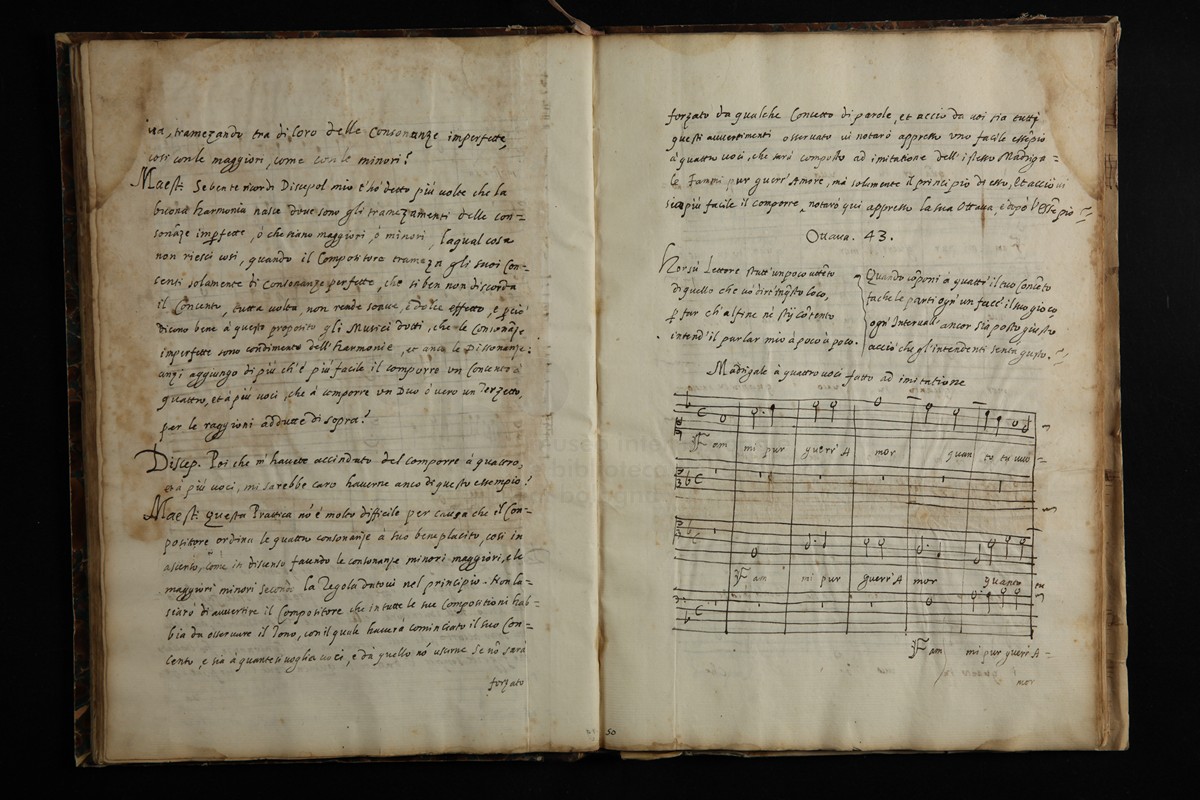 tramezando tra di loro delle Consonanze imperfette,
cosi con le maggiori, come con le minori?
Maest: Se bene ricordi Discepol mio t'hò detto più volte che la
buona harmonia nasce dove sono gli tramezamenti delle con=
sonãze imperfette, ò che siano maggiori, ò minori, laqual cosa
non riesci cosi, quando il Compositore trameza gli suoi Con=
centi solamente di Consonanze perfette, che si ben non discorda
il Concento, tutta volta, non rende soave, è dolce effetto, e perciò
dicono bene à questo proposito gli Musici dotti, che le Consonãze
imperfette sono condimento dell'harmonie, et anco le Dissonanze:
anzi aggiungo di più ch'è più facile il comporre un Concento à
quattro, et à più voci, che à comporre un Duo ò vero un Terzetto,
per le raggioni addutte di sopra?
Discep. Poi che m'havete accinduto del comporre à quattro,
et à più voci, mi sarebbe caro haverne anco di questo essempio?
Maest: questa Prattica nõ è molto difficile per causa che il Com=
positore ordina le quattro consonanze à suo beneplacito, cosi in
ascenso, come in discenso facendo le consonanze minori maggiori, e le
maggiori minori secondo la Regola datovi nel principio. Non la=
sciarò di auvertire il Compositore che in tutte le sue Compositioni hab=
bia da osservare il Tono, con il quale haverà cominciato il suo Con=
cento, e sia à quante si voglia voci, e da quello nõ uscirne se nõ sarà
forzato
forzato da qualche Concetto di parole, et acciò da voi sia tutti
questi auvertimenti osservato vi notarò appresso uno facile essẽpio
à quattro voci, che sarà composto ad imitatione dell'istesso Madriga=
le Fammi pur guerr'Amore, mà solamente il principio di esso, et acciò vi
sia più facile il comporre, notarò qui appresso la sua Ottava, e dopò l'Essẽpio
Ottava. 43.
Horsù Lettore statt'un poco attẽto
di quello che vò dirt'in q̃sto loco,
p̱ far ch'al fine ne stij cõtento
intend'il parlar mio à poco à poco.
Quando cõponi à quattr'il tuo Concẽto
fa che le parti ogn'un facc'il suo gioco
ogn'Intervall'ancor sia posto giusto
acciò che gl'intendenti senta gusto.
Madrigale à quattro voci fatto ad imitatione
Fam mi pur guerr'A mor quan to tu vuo=
Fam mi pur guerr'A mor quanto tu
Fam mi pur guerr'A=
mor
50